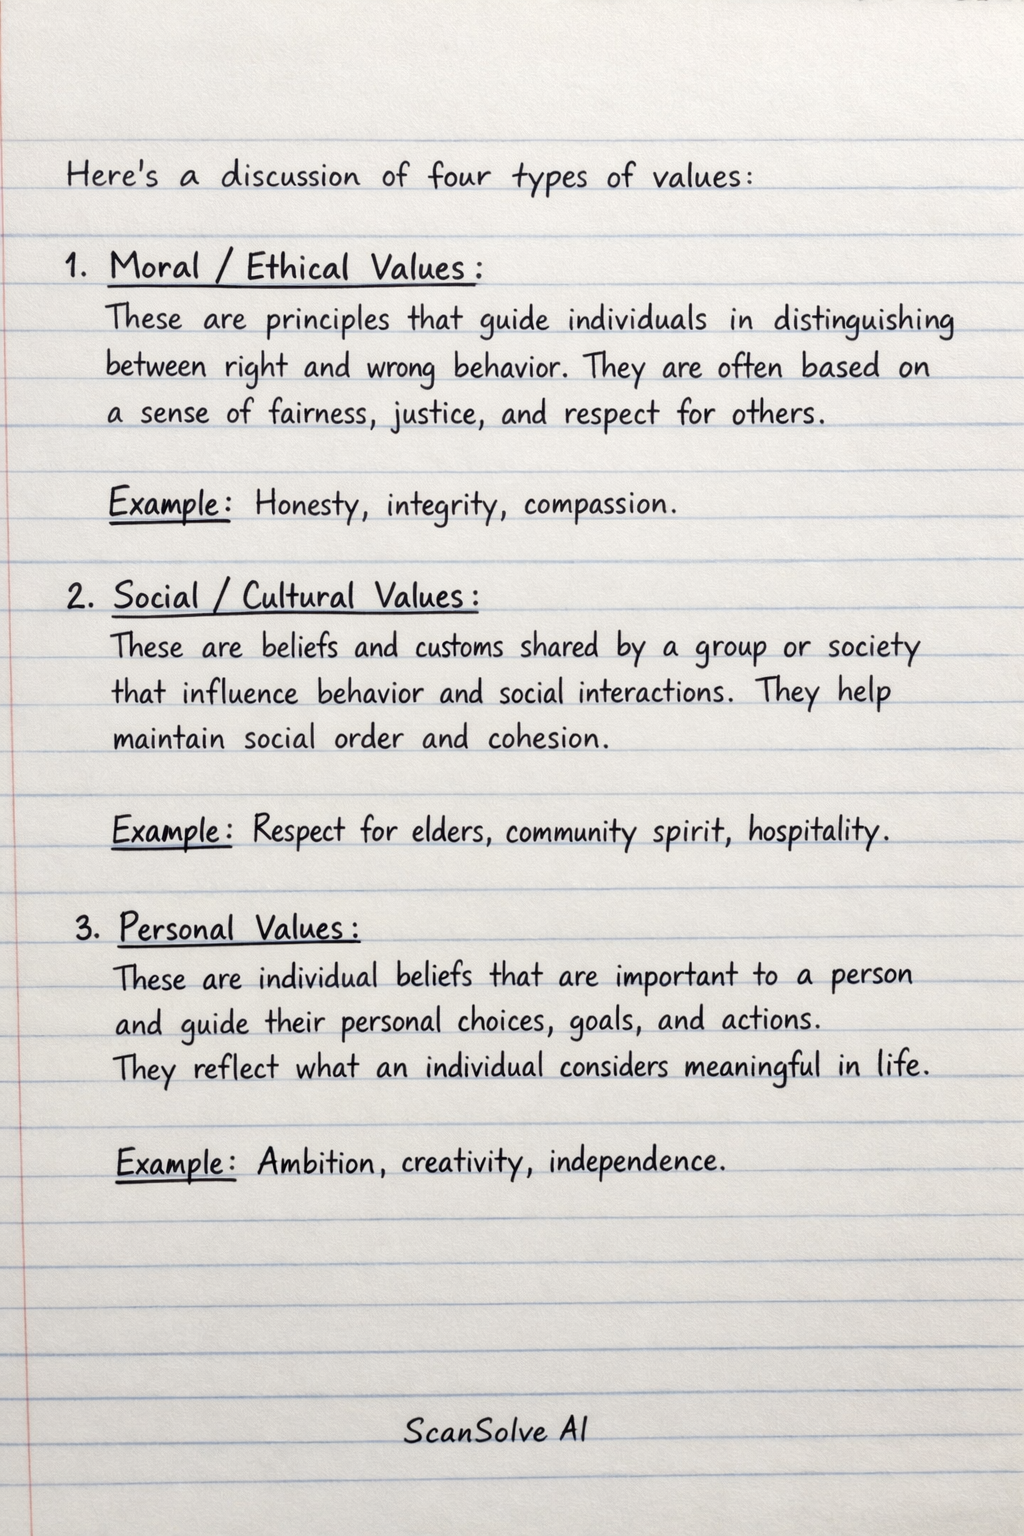 Here's a discussion of four types of values:
1. Moral / Ethical Values:
These are principles that guide individuals in distinguishing
between right and wrong behavior. They are often based on
a sense of fairness, justice, and respect for others.
Example: Honesty, integrity, compassion.
2. Social / Cultural Values:
These are beliefs and customs shared by a group or society
that influence behavior and social interactions. They help
maintain social order and cohesion.
Example: Respect for elders, community spirit, hospitality.
3. Personal Values:
These are individual beliefs that are important to a person
and guide their personal choices, goals, and actions.
They reflect what an individual considers meaningful in life.
Example: Ambition, creativity, independence.
ScanSolve AI